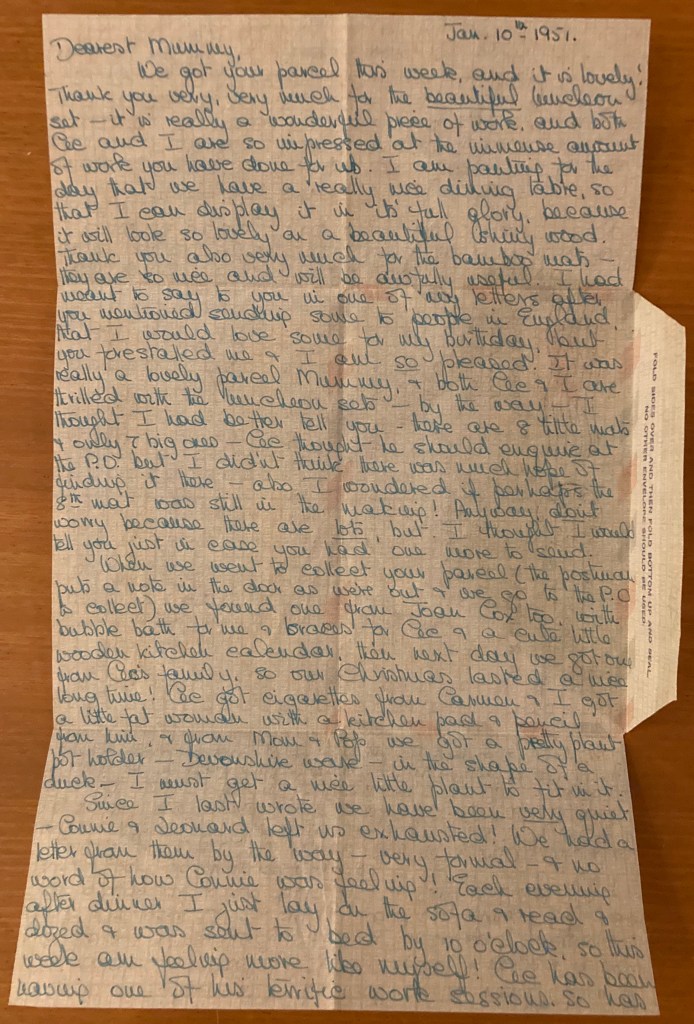 Jan. 10th 1951.
Dearest Mummy,
We got your parcel this week, and it is lovely!
Thank you very, very much for the beautiful luncheon
set – it is really a wonderful piece of work, and both
Cec and I are so impressed at the immense amount
of work you have done for us. I am panting for the
day that we have a really nice dining table, so
that I can display it in its full glory, because
it will look so lovely on a beautiful shiny wood.
Thank you also very much for the bamboo mats –
they are so nice and will be awfully useful. I had
meant to say to you in one of my letters after
you mentioned sending some to people in England,
that I would love some for my birthday, but
you forestalled me & I am so pleased. It was
really a lovely parcel Mummy, & both Cec & I are
thrilled with the luncheon sets – by the way – I
thought I had better tell you – there are 8 little mats
& only 7 big ones – Cec thought he should enquire at
the P.O. but I didn't think there was much hope of
finding it there – also I wondered if perhaps the
8th mat was still in the making! Anyway, don't
worry because there are lots, but I thought I would
tell you just in case you had one more to send.
When we went to collect your parcel (the postman
puts a note in the door as we're out & we go to the P.O
to collect) we found one from Joan Cox too, with
bubble bath for me & braces for Cec & a cute little
wooden kitchen calendar, then next day we got one
from Cec's family, so our Christmas lasted a nice
long time! Cec got cigarettes from Carmen & I got
a little fat woman with a kitchen pad & pencil
from him, & from Mom & Pop we got a pretty plant
pot holder – Devonshire ware – in the shape of a
duck – I must get a nice little plant to fit in it.
Since I last wrote we have been very quiet
– Connie & Leonard left us exhausted! We had a
letter from them by the way – very formal – & no
word of how Connie was feeling! Each evening
after dinner I just lay on the sofa & read &
dozed & was sent to bed by 10 o'clock, so this
week am feeling more like myself! Cec has been
having one of his terrific work sessions, so has
FOLD SIDES OVER AND THEN FOLD BOTTOM UP AND SEAL
NO OTHER ENVELOPE SHOULD BE USED.